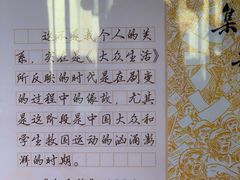 这不是我个人的关
系，实在是《大众生活》
所反映的时代是在剧变
的过程中的缘故，尤其
是这阶段是中国大众和
学生救国运动的汹涌澎
湃的时期。
集